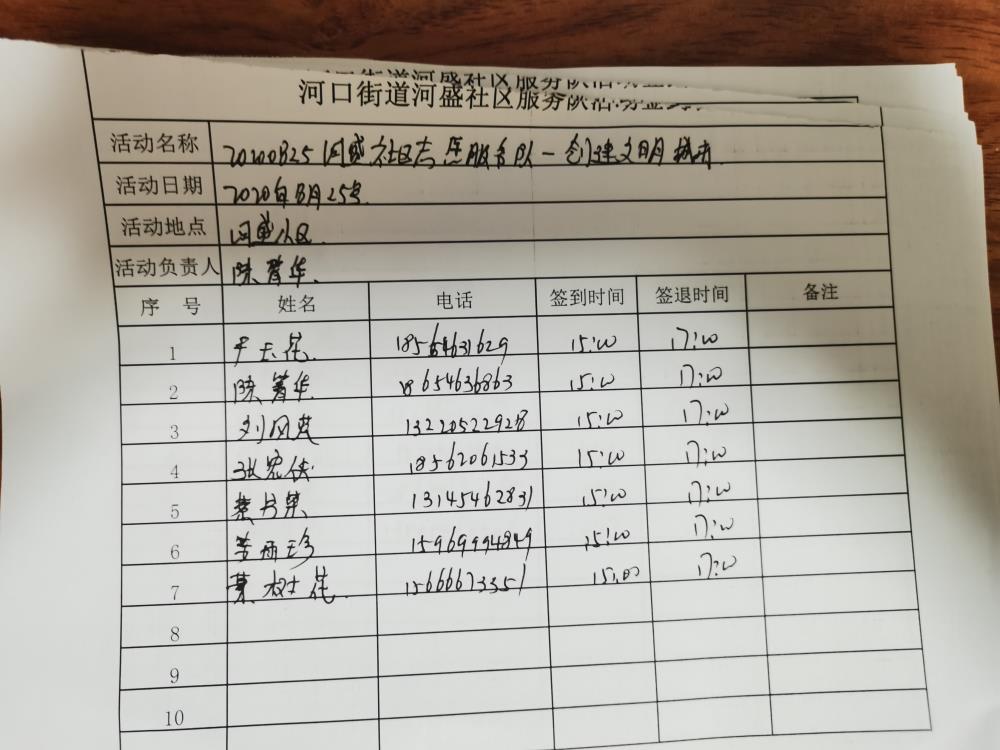 河口街道河盛社区服务队活动签到
活动名称 20200825河盛社区志愿服务队一创建文明城市
活动日期 2020年8月25号
活动地点 河盛小区
活动负责人 陈箐华
序 号 姓名 电话 签到时间 签退时间 备注
1 尹玉花 18564631629 15:00 17:00
2 陈箐华 18654636863 15:00 17:00
3 刘风英 13220522928 15:00 17:00
4 张宪侠 18562061533 15:00 17:00
5 13145462831 15:00 17:00
6 15969994849 15:00 17:00
7 15666673351 15:00 17:00
8
9
10